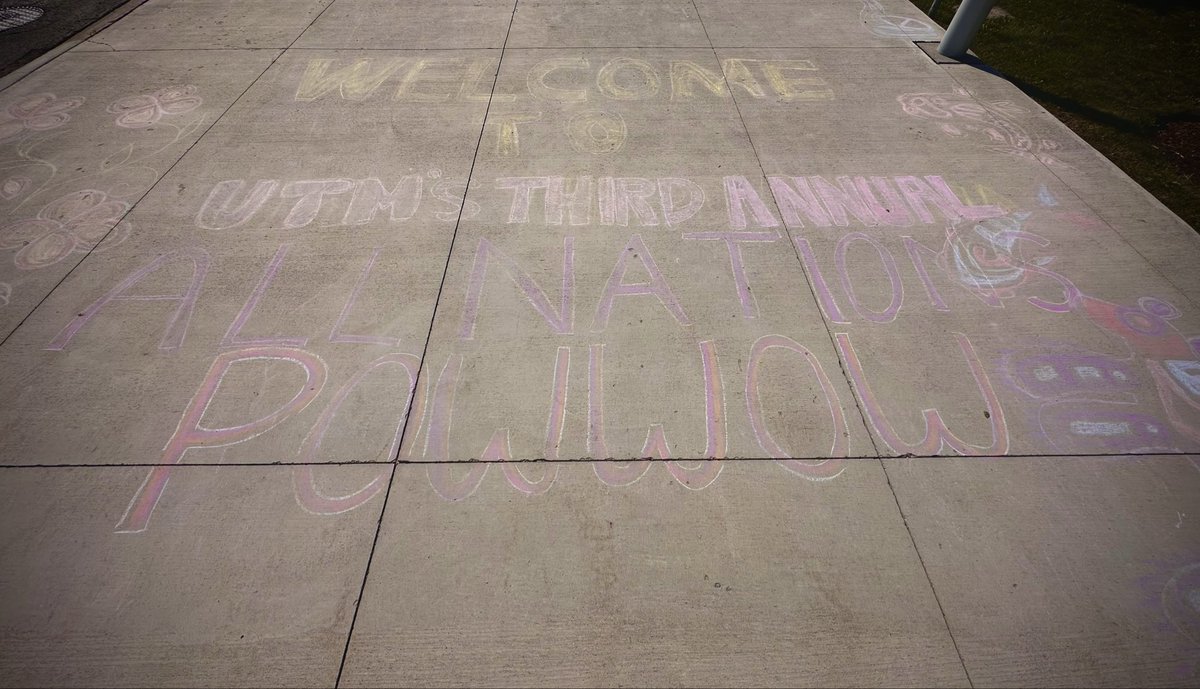 WELCOME
TO
UTM's THIRD ANNUAL
ALL NATIONS
POWWOW